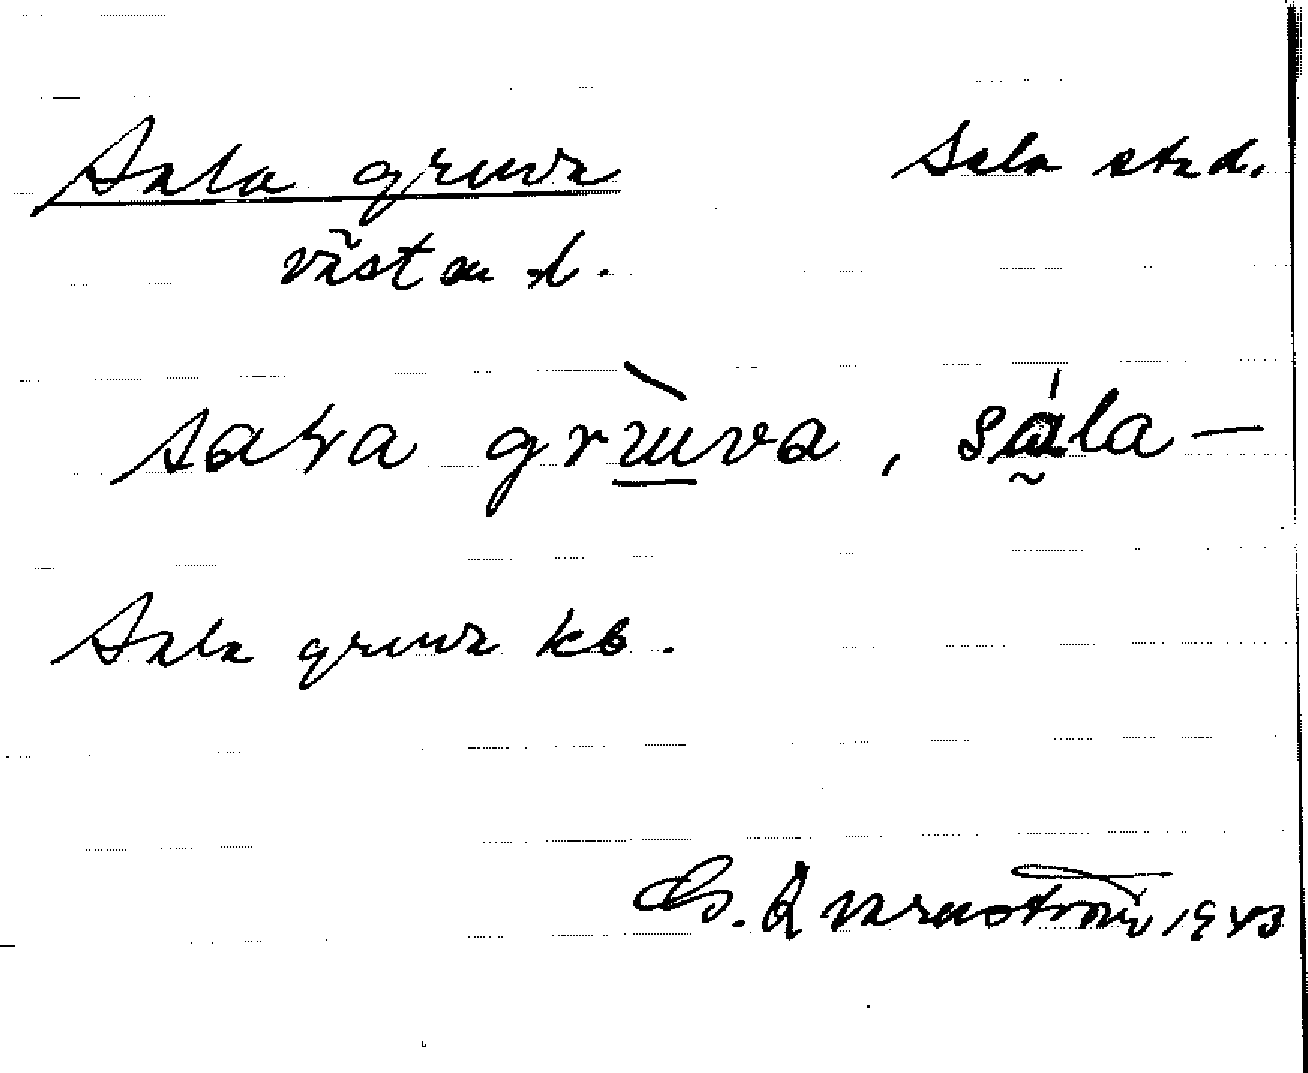 Sala gruva Sala stad.
Västm l.
sala grùva, sála —
Sala gruva kb.
G. Qvarnström 1943